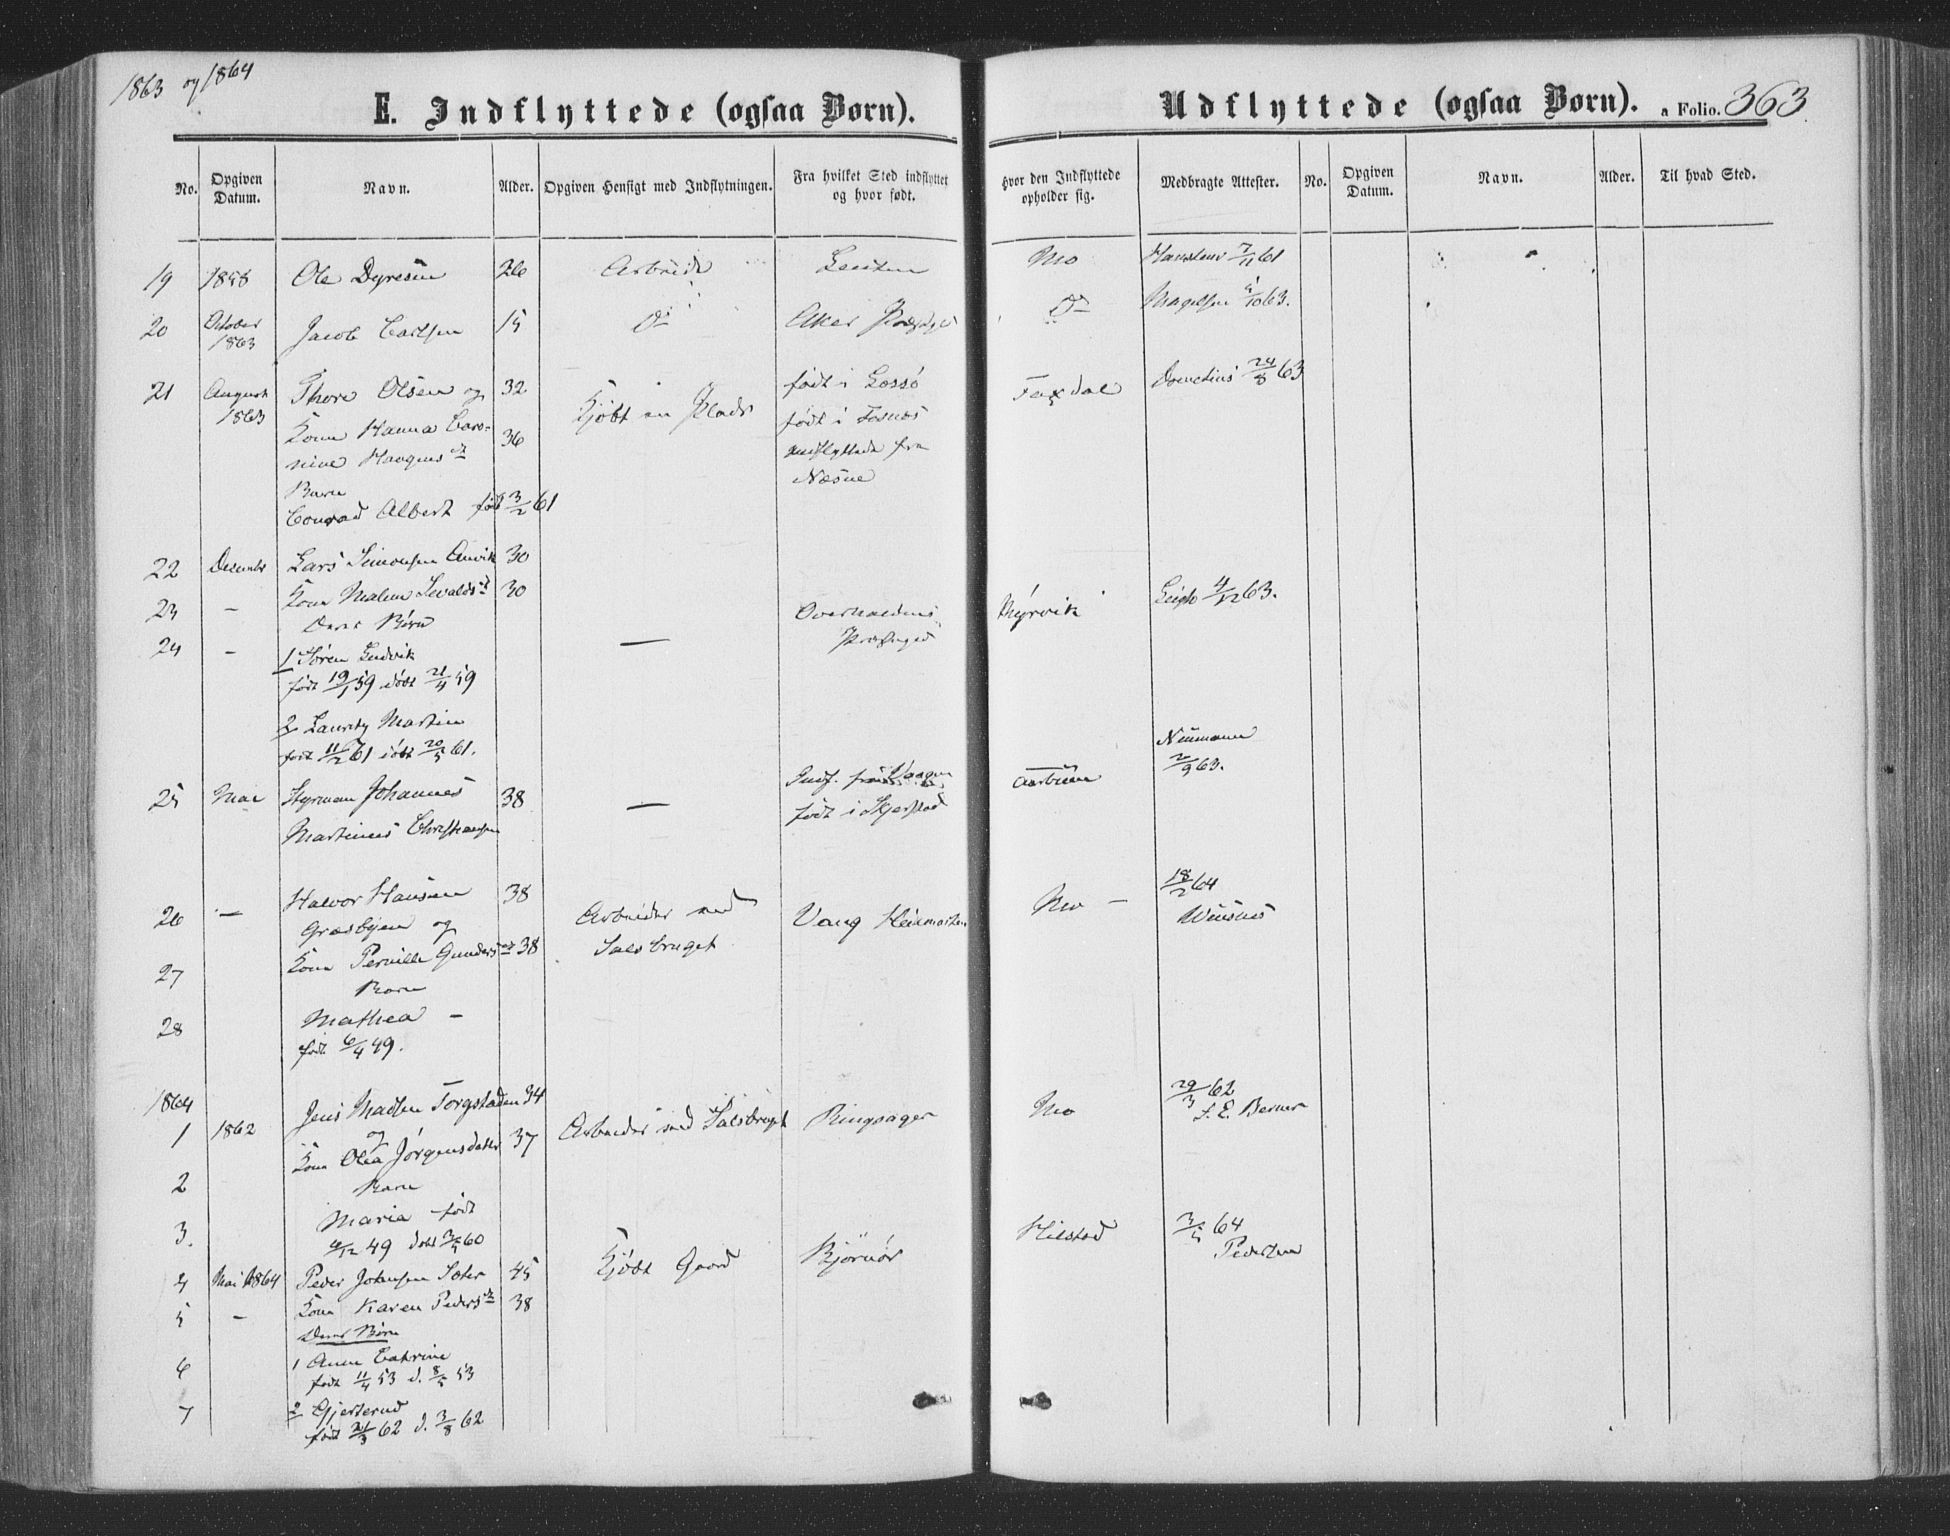 1863 og 1864
E. Indflyttede (ogsaa Børn).
Udflyttede (ogsaa Børn). a Folio. 363
No. Opgiven Datum. Navn. Alder. Opgiven Hensigt med Indflytningen. Fra hvilket Sted indflyttet og hvor født. Hvor den Indflyttede opholder sig. Medbragte Attester. No. Opgiven Datum. Navn. Alder. Til hvad Sted.
19 1858 Ole Dyresen 26 Arbeide Mo 7/11 61
20 October 1863 Jacob Carlsen 15 Do Aker Do Magelsen 10 63.
21 August 1863 Thore Olsen og 32 Kjøbt en Plads født i Faxdal 24/8 63
Kone Hanna 36 født i Fosnæs
indflyttede fra
Næsne
Barn
Conrad Albert født 3/2 61
22 December Lars Simonsen 30
23 - Kone Malene 30 Overhaldens Præstegjed Myrvik Leigh 4/12 63.
Deres Børn
24 - 1 Søren Ludvik —
født 19/1 59 døbt 21/4 59
2 Martin
født 11/2 61 døbt 20/5 61.
25 Mai Styrman Johannes 38 — Indf. fra Neumann 2/9 63.
Martinus Christiansen født i Skjerstad
26 — Halvor Hansen 38 Arbeider ved Vang Hedemarken Mo — 18/2 64
Græsbyen og Salsbruget
27 Kone Pernille 38
Barn
28 Mathea -
født 6/4 49.
1864
1 1862 Jens Madsen Torgstaden 34 Arbeider ved Salsbruget Ringsager Mo 29/3 62
og
2 Kone Olea Jørgensdatter 37 Berner
Barn
3. Maria født
12 49 døbt 60
4 Mai 1864 Peder Johnsen Sæter 45 Kjøbt Gaard Bjørnør Hilstad 3/5 64
5 - Kone Karen Peders 38 Pedersen
Deres Børn
6 1 Anne Cathrine
født 11/4 53 d. 8/5 53
7 2 Gjertrud
født 21/3 62 d. 3/8 62